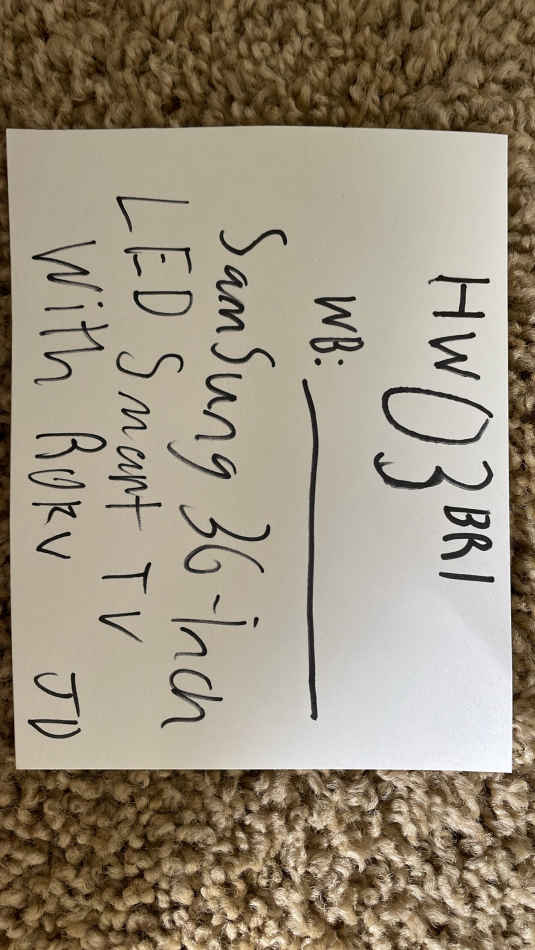 HW03BR1
WB:
Samsung 36-inch
LED Smart TV
With Roku JD